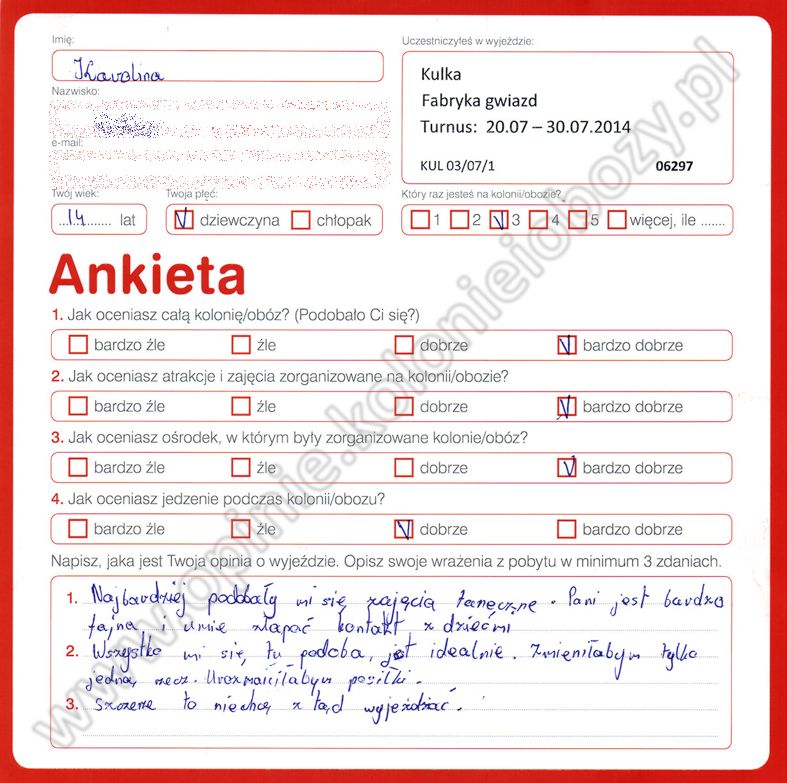 Imię:
Karolina
Nazwisko:
e-mail:
Twój wiek:
...14....... lat
Twoja płeć:
dziewczyna chłopak
Uczestniczyłeś w wyjeździe:
Kulka
Fabryka gwiazd
Turnus: 20.07 – 30.07.2014
KUL 03/07/1 06297
Który raz jesteś na kolonii/obozie?
1 2 3 4 5 więcej, ile .......
Ankieta
1. Jak oceniasz całą kolonię/obóz? (Podobało Ci się?)
bardzo źle źle dobrze bardzo dobrze
2. Jak oceniasz atrakcje i zajęcia zorganizowane na kolonii/obozie?
bardzo źle źle dobrze bardzo dobrze
3. Jak oceniasz ośrodek, w którym były zorganizowane kolonie/obóz?
bardzo źle źle dobrze bardzo dobrze
4. Jak oceniasz jedzenie podczas kolonii/obozu?
bardzo źle źle dobrze bardzo dobrze
Napisz, jaka jest Twoja opinia o wyjeździe. Opisz swoje wrażenia z pobytu w minimum 3 zdaniach.
1. Najbardziej podobały mi się zajęcia taneczne. Pani jest bardzo
fajna i umie złapać kontakt z dziećmi
2. Wszystko mi się tu podoba, jest idealnie. Zmieniłabym tylko
jedną rzecz. Urozmaiciłabym posiłki.
3. Szczerze to niechcę z tąd wyjeżdżać.
www.opinie.kolonieiobozy.pl